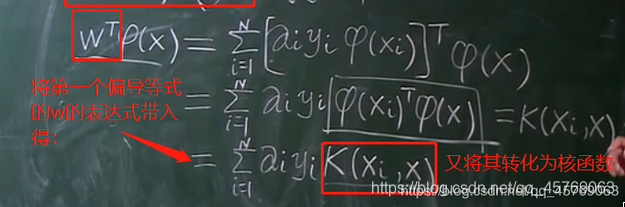 WᵀφCX) = Σ_{i=1}^{N} [αi yi φ(xi)]ᵀ φ(x)
将第一个偏导等式
的w的表达式带入
得:
= Σ_{i=1}^{N} αi yi φ(xi)ᵀφ(x) = K(xi,x)
= Σ_{i=1}^{N} αi yi K(xi,x)
又将其转化为核函数
https://blog.csdn.net/qq_45769063